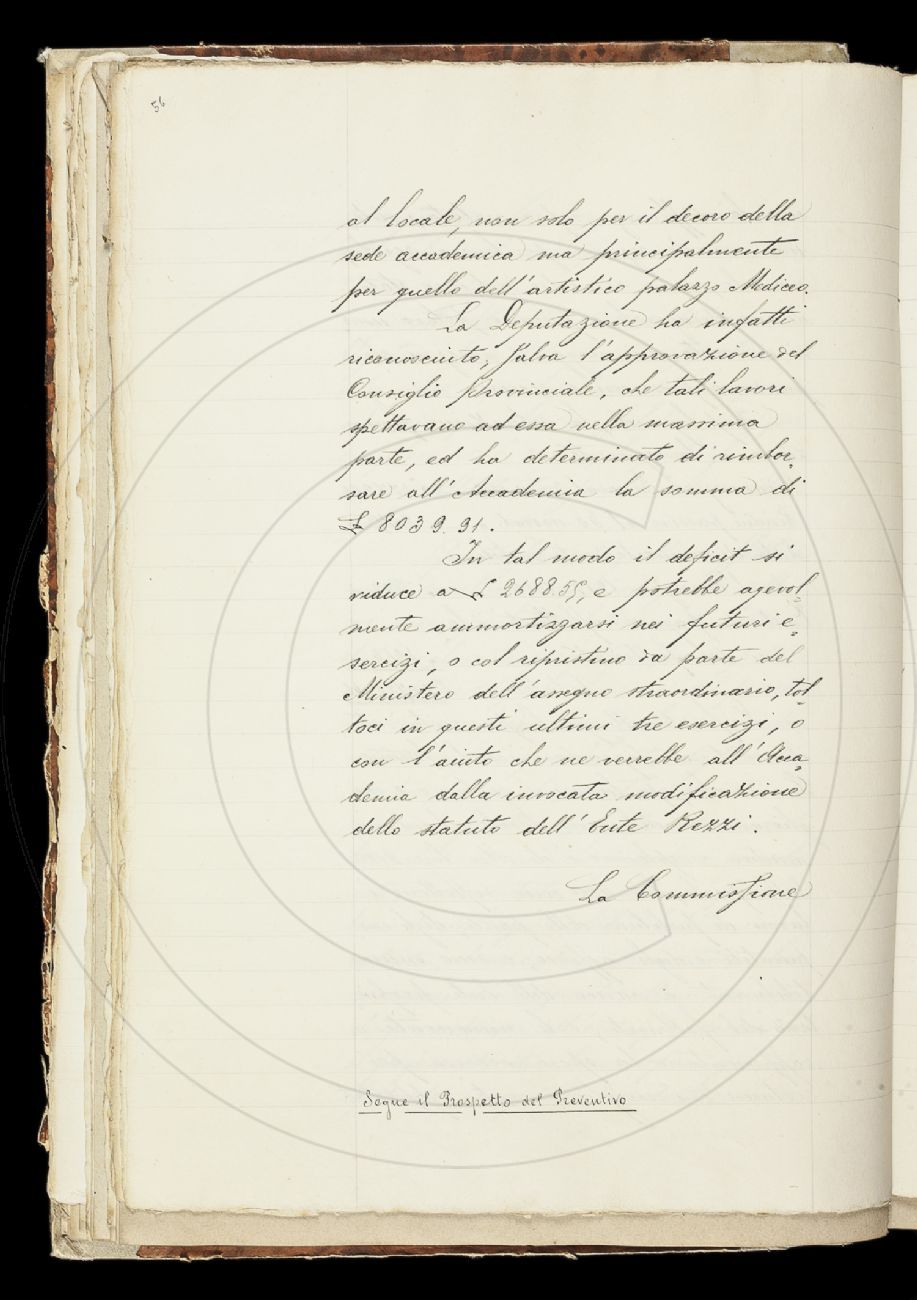 56
al locale, non solo per il decoro della
sede accademica ma principalmente
per quello dell'artistico palazzo Mediceo.
La Deputazione ha infatti
riconosciuto, salva l'approvazione del
Consiglio Provinciale, che tali lavori
spettavano ad essa nella massima
parte, ed ha determinato di rimbor=
sare all'Accademia la somma di
£ 8039.91.
In tal modo il deficit si
riduce a £ 2688.55, e potrebbe agevol=
mente ammortizzarsi nei futuri e=
sercizi, o col ripristino da parte del
Ministero dell'assegno straordinario, tol=
toci in questi ultimi tre esercizi, o
con l'aiuto che ne verrebbe all'Acca=
demia dalla invocata modificazione
dello statuto dell'Ente Rezzi.
La Commissione
Segue il Prospetto del Preventivo